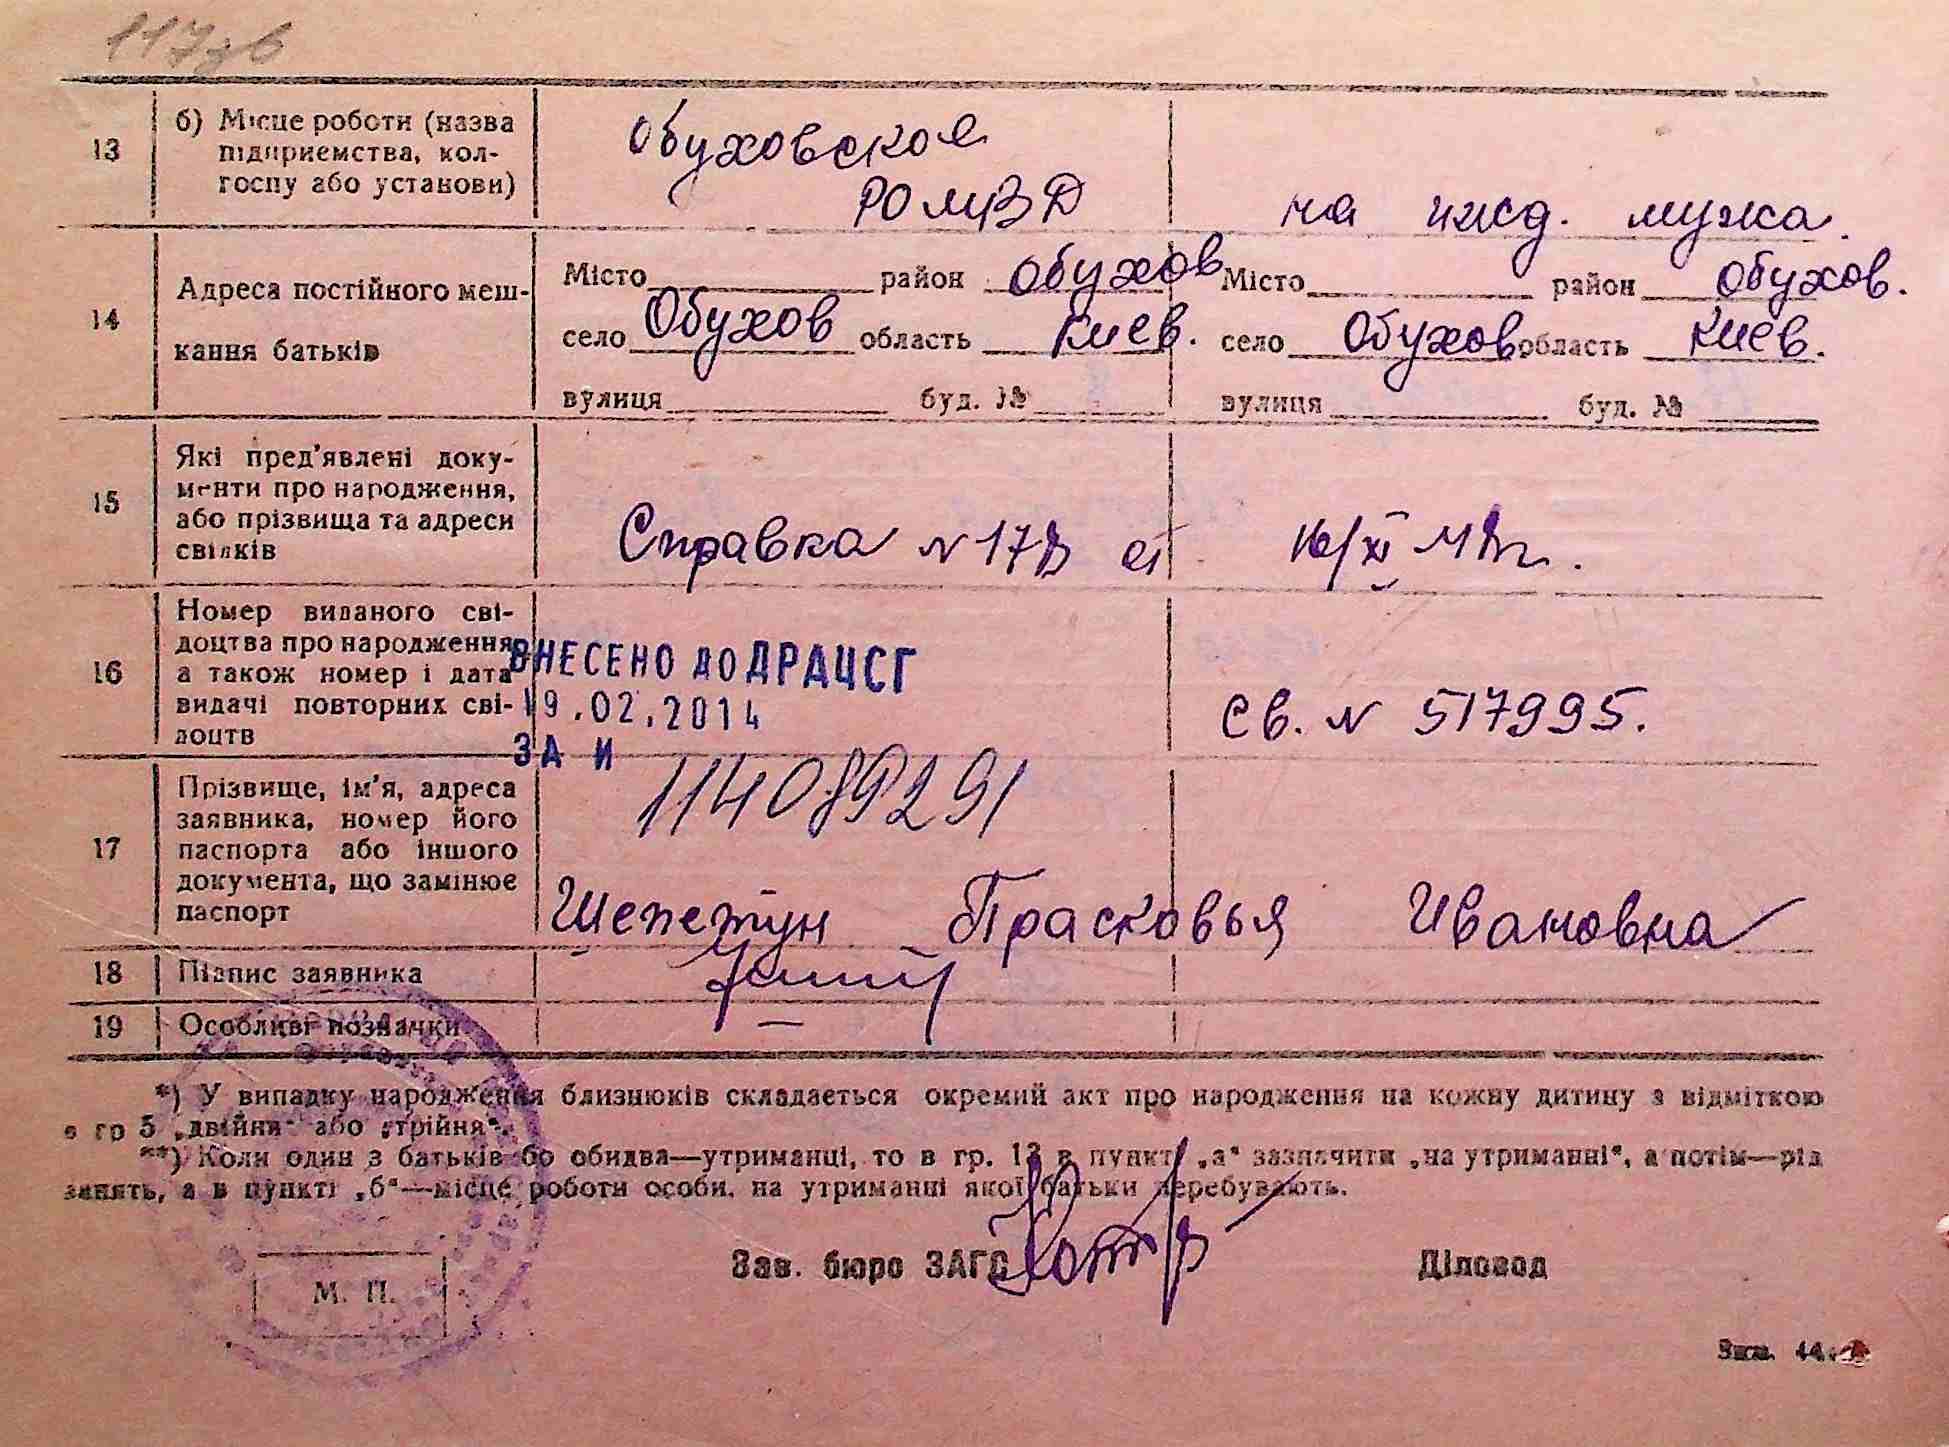 117зв
13
б) Місце роботи (назва
підприємства, кол-
госпу або установи)
Обуховское
РОМВД
на ижд. мужа.
14
Адреса постійного меш-
кання батьків
Місто район Обухов
село Обухов область Киев.
вулиця буд. №
Місто район Обухов.
село Обухов область Киев.
вулиця буд. №
15
Які пред'явлені доку-
менти про народження,
або прізвища та адреси
свідків
Справка N 178 от
16
Номер виданого сві-
доцтва про народження
а також номер і дата
видачі повторних сві-
доцтв
ВНЕСЕНО ДО ДРАЦСГ
19.02.2014
ЗА И
Св. N 517995.
17
Прізвище, ім'я, адреса
заявника, номер його
паспорта або іншого
документа, що замінює
паспорт
114089291
Шепетун Прасковья Ивановна
18
Підпис заявника
19
Особливі позначки
—
*) У випадку народження близнюків складається окремий акт про народження на кожну дитину з відміткою
в гр 5 „двійня" або „трійня".
**) Коли один з батьків бо обидва—утриманці, то в гр. 13 в пункті „а" зазначити „на утриманні", а потім—рід
занять, а в пункті „б"—місце роботи особи, на утриманні якої батьки перебувають.
Зав. бюро ЗАГС
Діловод
М. П.